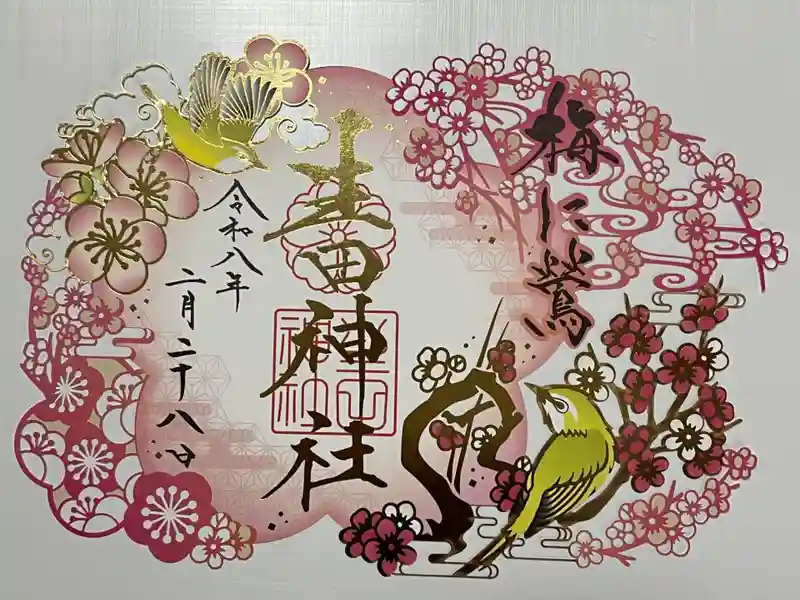 梅に鶯
神社
令和八年
二月二十八日